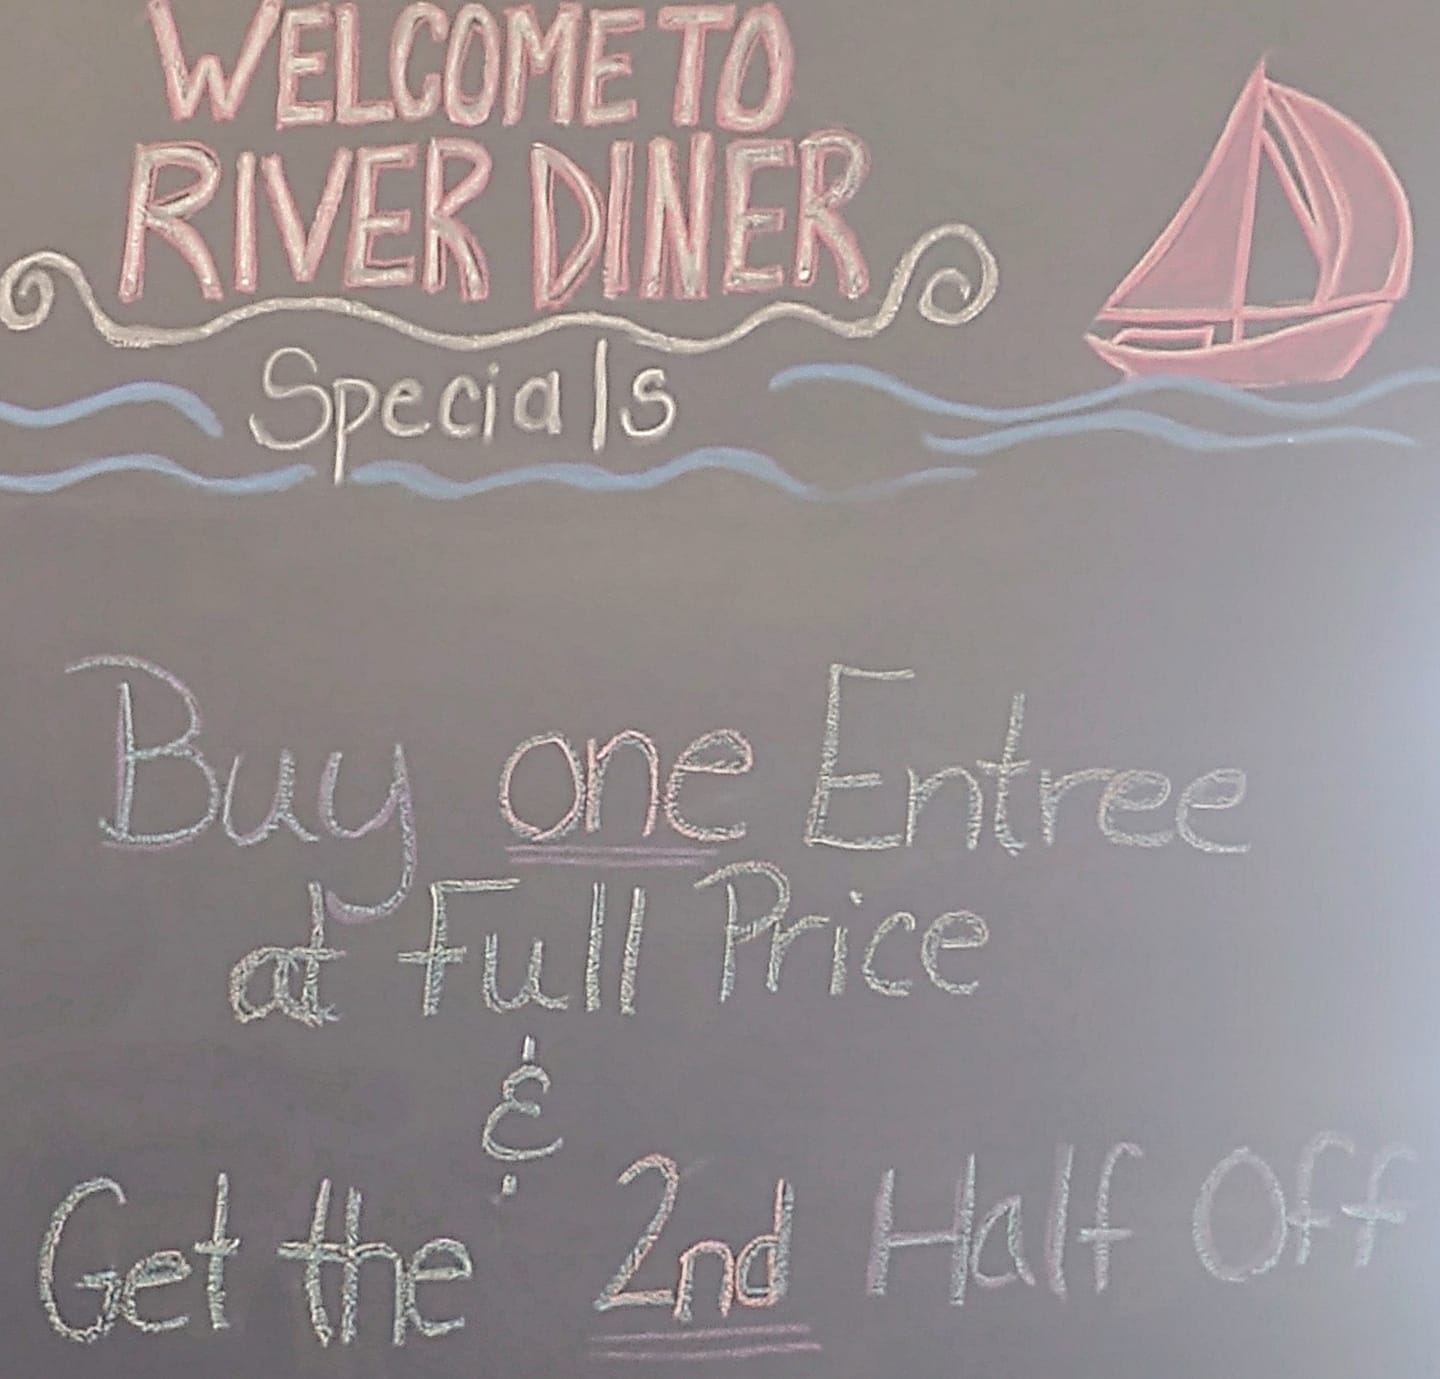 WELCOME TO
RIVER DINER
Specials
Buy one Entree
at Full Price
&
Get the 2nd Half Off